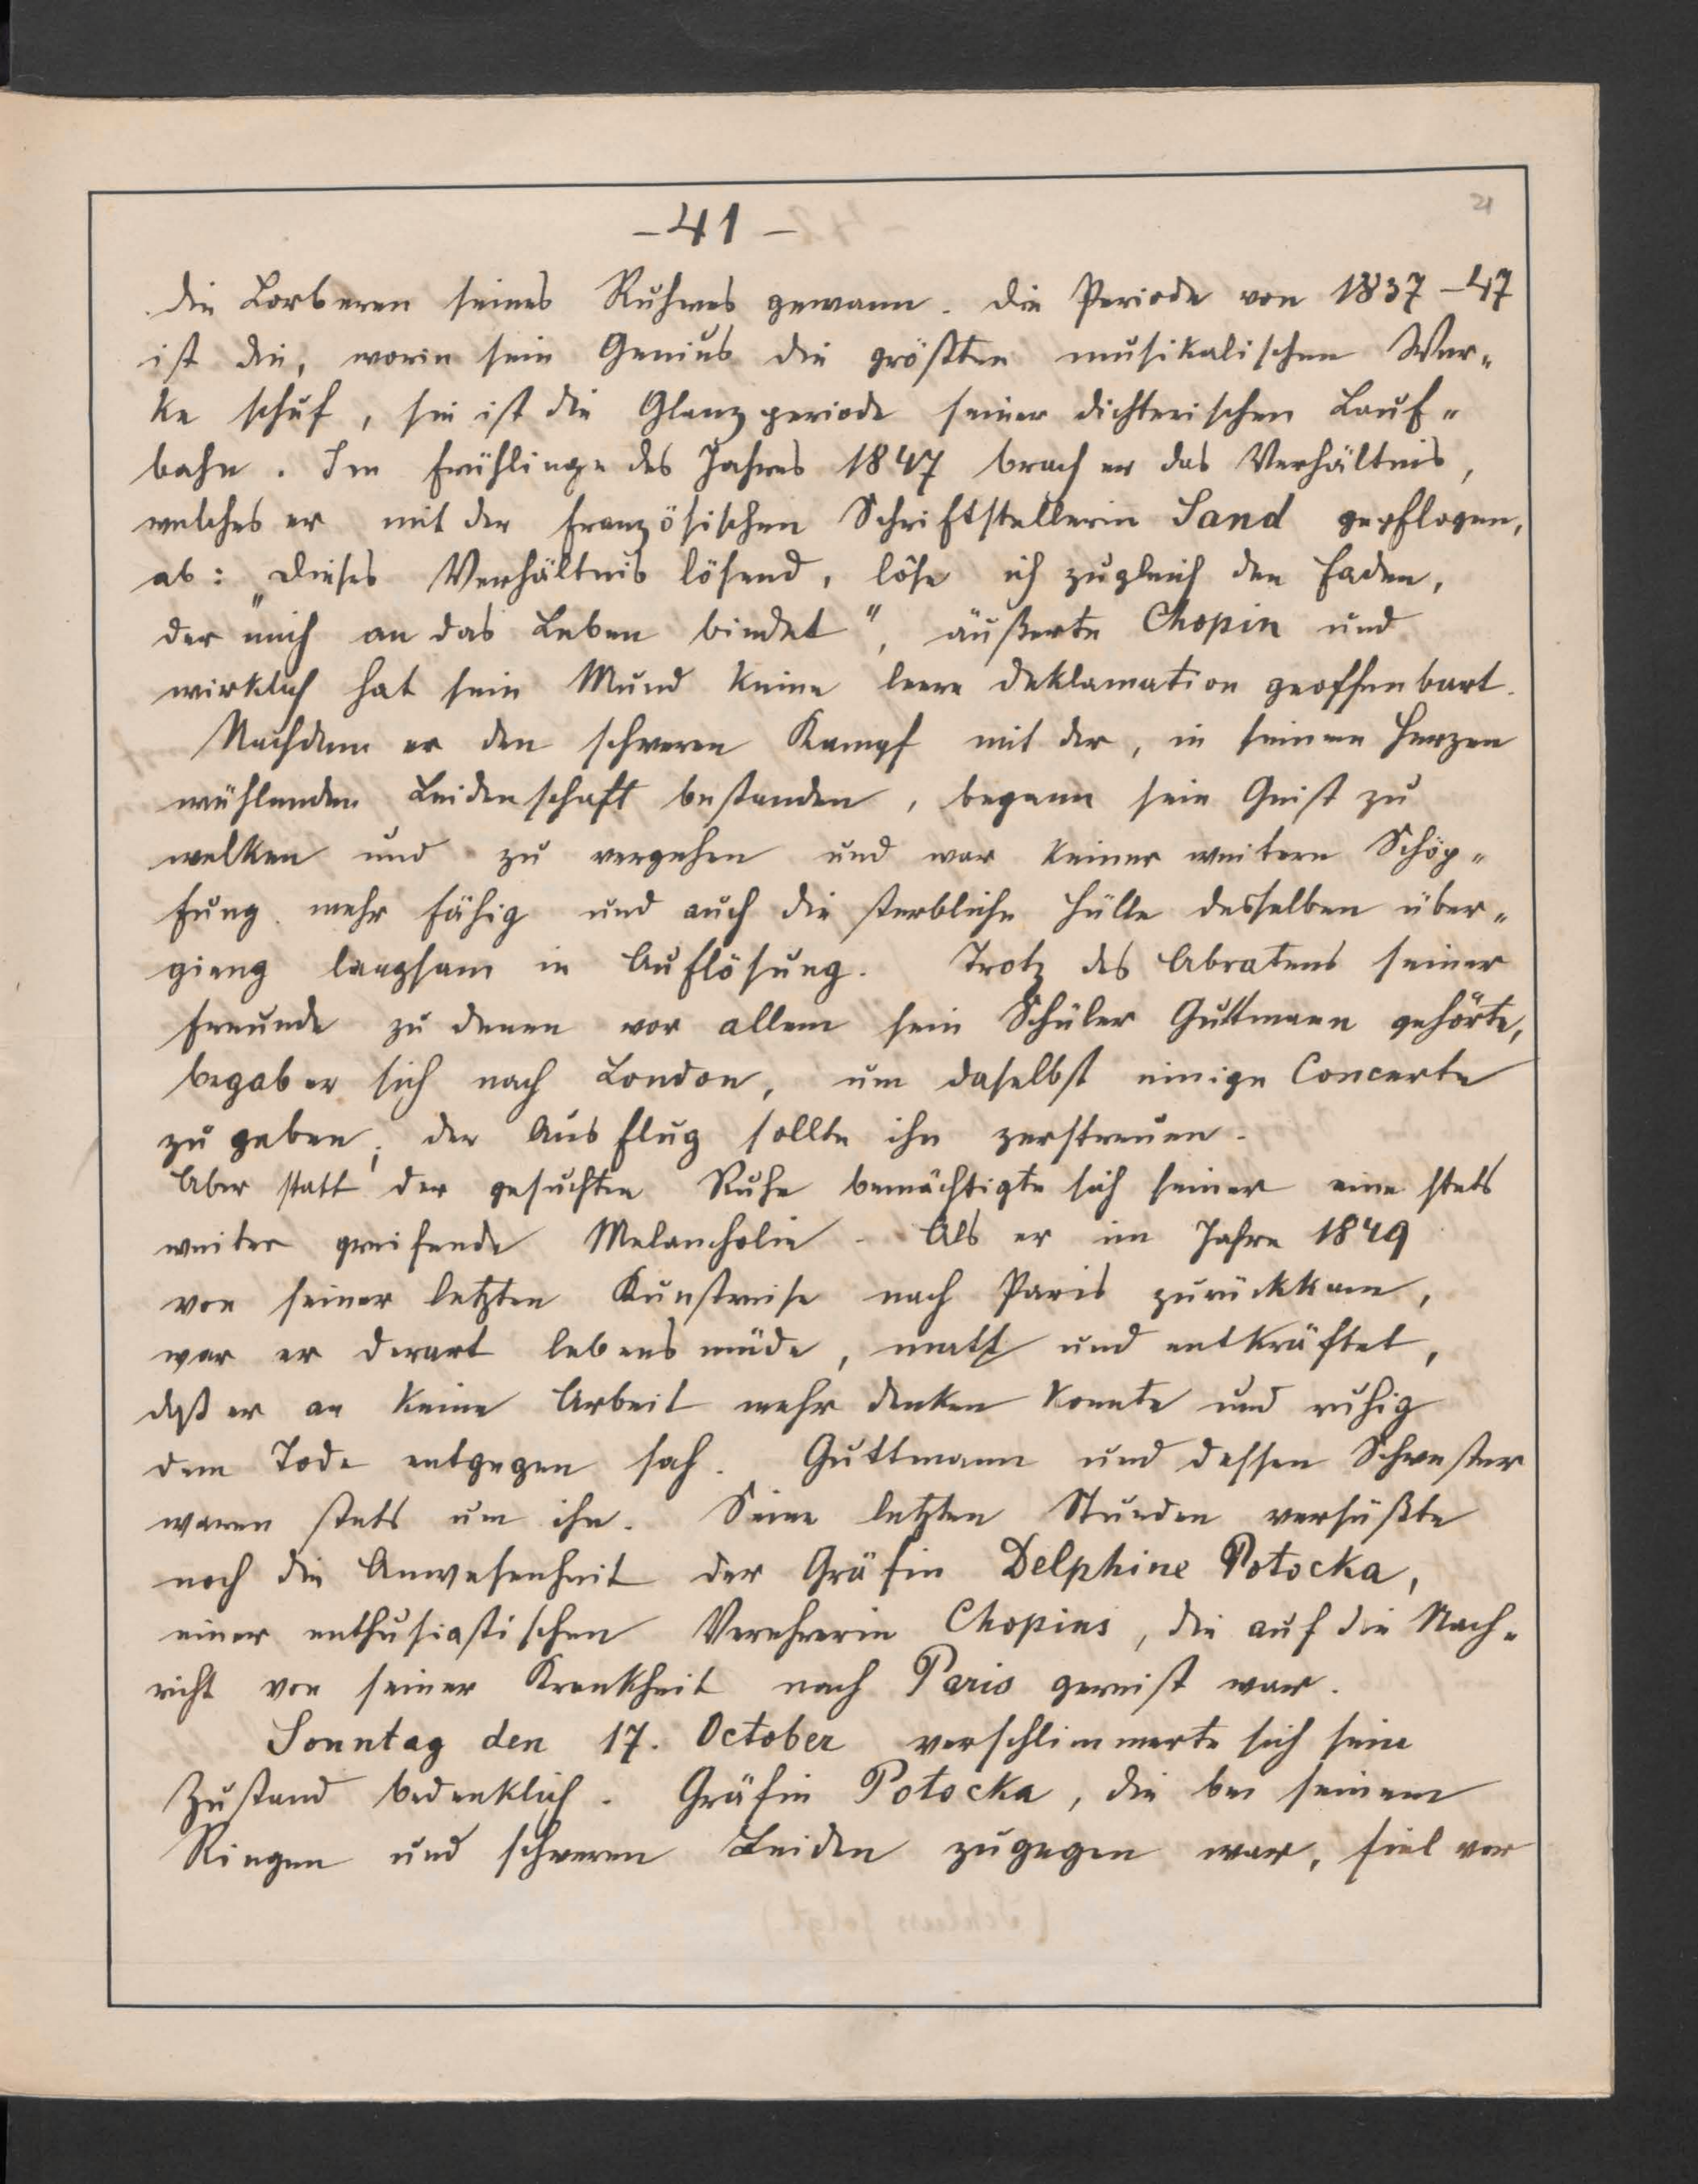 21
- 41 -
die Lorberen seines Ruhmes gewann. Die Periode von 1837-47
ist die, worin sein Genius die größten musikalischen Wer„
ke schuf, sie ist die Glanzperiode seiner dichterischen Lauf„
bahn. Im Frühlinge des Jahres 1847 brach er das Verhältnis,
welches er mit der französischen Schriftstellerin Sand gepflogen,
ab: „Dieses Verhältnis lösend, löse ich zugleich den Faden,
der mich an das Leben bindet", äußerte Chopin und
wirklich hat sein Mund keine leere Deklamation geoffenbart.
Nachdem er den schweren Kampf mit der, in seinem Herzen
wühlenden Leidenschaft bestanden, begann sein Geist zu
welken und zu vergehen und war keiner weitern Schöp„
fung mehr fähig und auch die sterbliche Hülle desselben über„
gieng langsam in Auflösung. Trotz des Abratens seiner
Freunde zu denen vor allem sein Schüler Guttmann gehörte,
begab er sich nach London, um daselbst einige Concerte
zu geben; der Ausflug sollte ihn zerstreuen.
Aber statt der gesuchten Ruhe bemächtigte sich seiner eine stets
weiter greifende Melancholie. Als er im Jahre 1849
von seiner letzten Kunstreise nach Paris zurückkam,
war er derart lebensmüde, matt und entkräftet,
daß er an keine Arbeit mehr denken konnte und ruhig
dem Tode entgegen sah. Guttmann und dessen Schwester
waren stets um ihn. Seine letzten Stunden versüßte
noch die Anwesenheit der Gräfin Delphine Potocka,
einer enthusiastischen Verehrerin Chopins, die auf die Nach„
richt von seiner Krankheit nach Paris gereist war.
Sonntag den 17. October verschlimmerte sich sein
Zustand bedenklich. Gräfin Potocka, die bei seinem
Ringen und schweren Leiden zugegen war, fiel vor